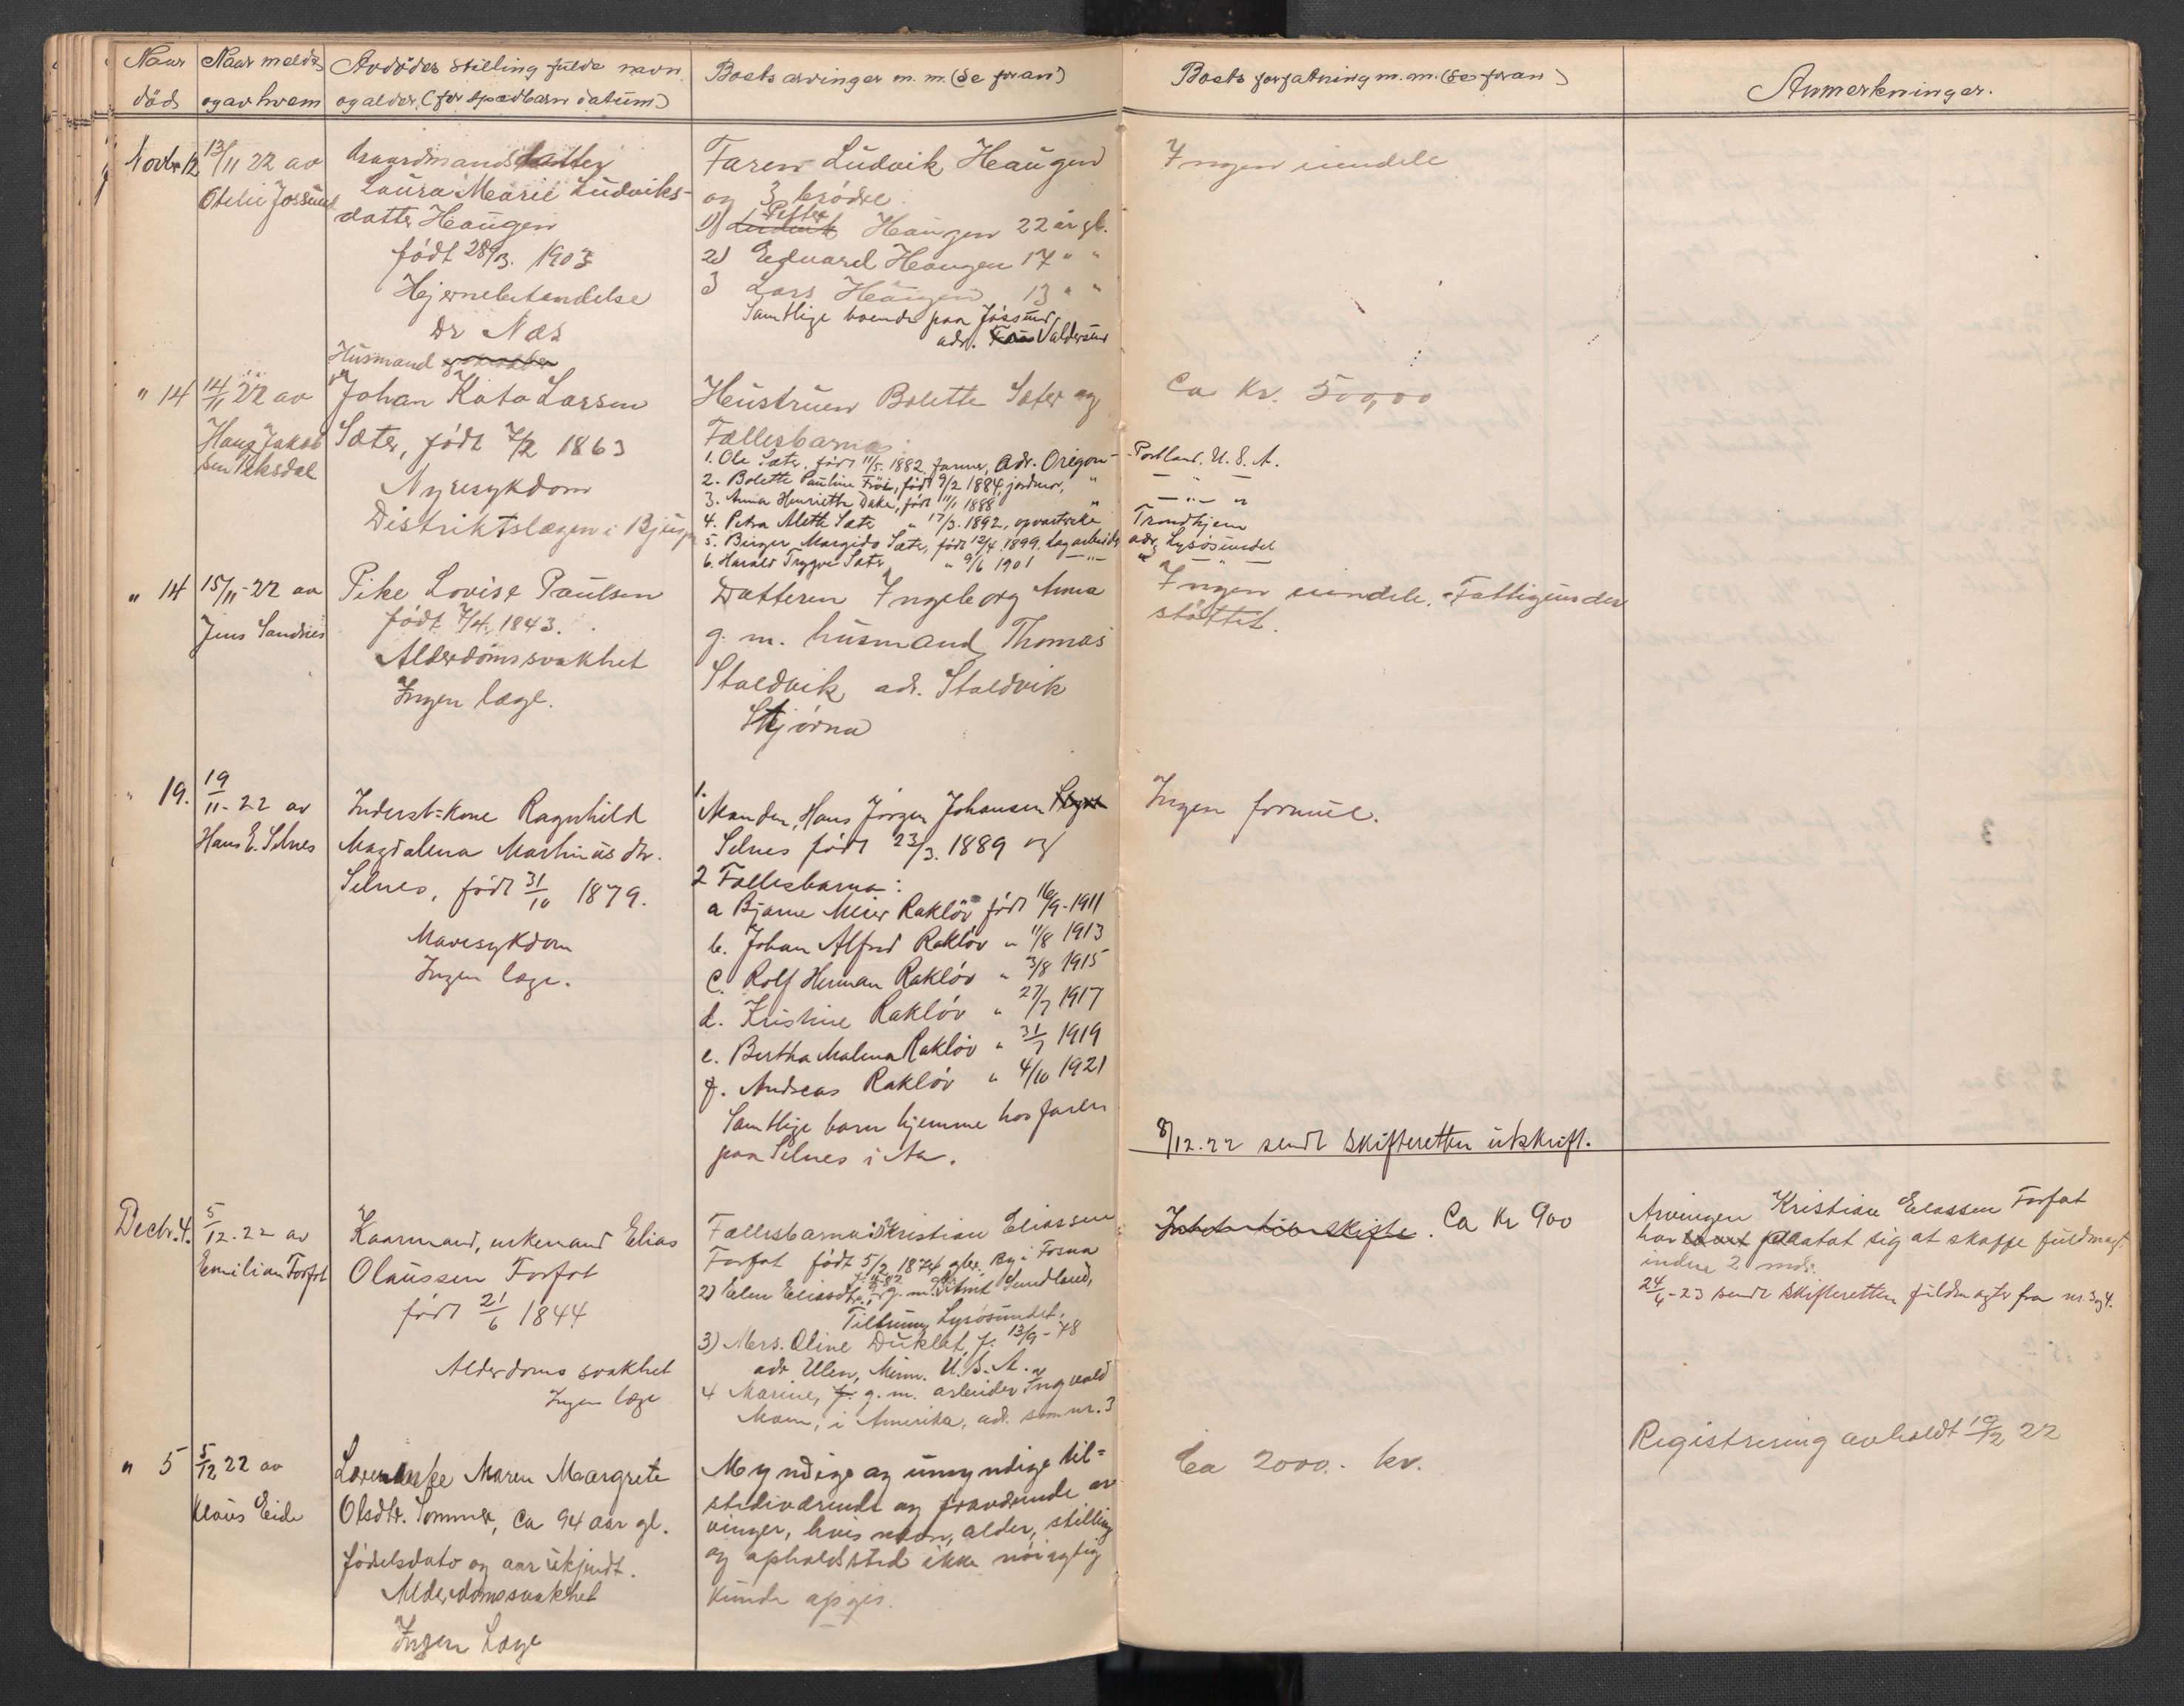 Naar
död
Naar meldt
og av hvem
Avdödes stilling fulde navn
og alder. (for spædbarn datum)
Boets arvinger m. m. (Se foran)
Boets forfatning m. m. (Se foran)
Anmerkninger.
Novbr 12
13/11 22 av
Otelie Jøssund
Gaardmandsdatter
Laura Marie Ludviks-
datter Haugen
født 28/3. 1903
Hjernebetendelse
Dr Næs
Faren Ludvik Haugen
og 3 brødre.
1) Petter Haugen 22 år gl.
2) Edvard Haugen 17 " "
3 Lars Haugen 13 " "
Samtlige boende paa Jøssund,
adr. Valdersund
Ingen eiendele
" 14
14/11 22 av
Hans Jakob
sen Teksdal
Husmand
Johan Kato Larsen
Sæter, født 7/2 1863
Nyresykdom
Distriktslægen i Bjugn
Hustruen Bolette Sæter og
Fællesbarna:
1. Ole Sæter. født 11/5. 1882, farmer, Adr. Origon-
Portland. U. S. A.
2. Bolette Pauline Fröi, født 9/2 1884, jordmor, "
— " —
3. Anna Henriette Dake, født 11/1 1888 "
— " — "
4. Petra Alette Sæter " 17/3. 1892, opvarterske
Trondhjem
5. Birger Margido Sæter, født 12/4 1899. dagarbeider
adr. Lysøsundet
6. Harald Trygve Sæter " 9/6 1901 — " —
" — " —
Ca Kr. 500,00
" 14
15/11-22 av
Jens Sandnes
Pike Lovise Paulsen
født 7/4. 1843.
Alderdomssvakhet
Ingen læge.
Datteren Ingeborg Anna
g. m. husmand Thomas
Staldvik adr. Staldvik
Stjørna
Ingen eiendele. Fattigunder
støttet.
" 19.
19/11-22 av
Hans E. Selnes
Inderst-kone Ragnhild
Magdalena Martinus dtr.
Selnes, født 31/10 1879.
Mavesykdom
Ingen læge.
1. Manden, Hans Jørgen Johansen
Selnes født 23/3. 1889 og
2 Fællesbarna:
a Bjarne Meier Rakløv født 16/9-1911
b. Johan Alfred Rakløv " 11/8 1913
c. Rolf Herman Rakløv " 3/8 1915
d. Kristine Rakløv " 27/7 1917
e. Bertha Malena Rakløv " 31/7 1919
f. Andreas Rakløv " 4/10 1921
Samtlige barn hjemme hos faren
paa Selnes i Aa.
Ingen formue.
8/12.22 sendt skifteretten utskrift.
Decbr. 4.
5/12.22 av
Emilian Forfot
Kaarmand, enkemand Elias
Olaussen Forfot
født 21/6 1844
Alderdoms svakhet
Ingen læge
Fællesbarna: 1) Kristian Eliassen
Forfot født 5/2 1874 gbr. Ry i Fosna
2) Elen Eliasdtr., g. m. Sundland,
Tiltrum, Lysøsundet.
3) Mers. Oline Duklet, f. 13/9-'78
adr Ulen, Minn. U. S. A.
4 Marine, g. m. arbeider Ingvald
Moen, i Amerika, adr. som nr. 3
Ca Kr 900
Arvingen Kristian Elassen Forfot
har paatat sig at skaffe fuldmagt
inden 2 mdr.
24/4-23 sendt skifteretten fuldmagter fra nr. 3 og 4.
" 5
5/12 22 av
Klaus Eide
Maren Margrete
Olsdtr. Sommer, ca 94 aar gl.
fødselsdato og aar ukjendt.
Alderdomssvakhet
Ingen Læge
Myndige og umyndige til-
stedeværende og fraværende ar
vinger, hvis navn, alder, stilling
og opholdssted ikke nöiagtig
kunde opgis.
Ca 2000.- kr.
Registrering avholdt 19/12 22